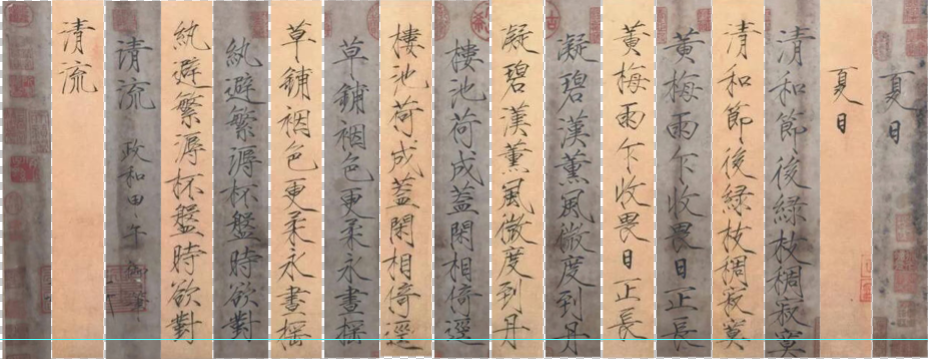 夏日
夏日
清和節後綠枝稠寂寞
清和節後綠枝稠寂寞
黃梅雨乍收畏日正長
黃梅雨乍收畏日正長
凝碧漢薰風微度到丹
凝碧漢薰風微度到丹
樓池荷成蓋閑相倚逕
樓池荷成蓋閑相倚逕
草鋪裀色更柔永晝搖
草鋪裀色更柔永晝搖
紈避繁溽杯盤時欲對
紈避繁溽杯盤時欲對
清流 政和甲午
清流